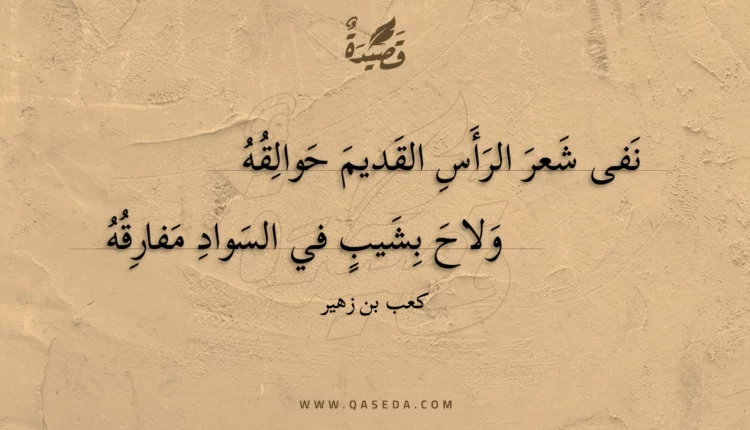 قَصيدَةٌ
نَفى شَعرَ الرَأَسِ القَديمَ حَوالِقُهُ
وَلاحَ بِشَيبٍ في السَوادِ مَفارِقُهُ
كعب بن زهير
WWW.QASEDA.COM